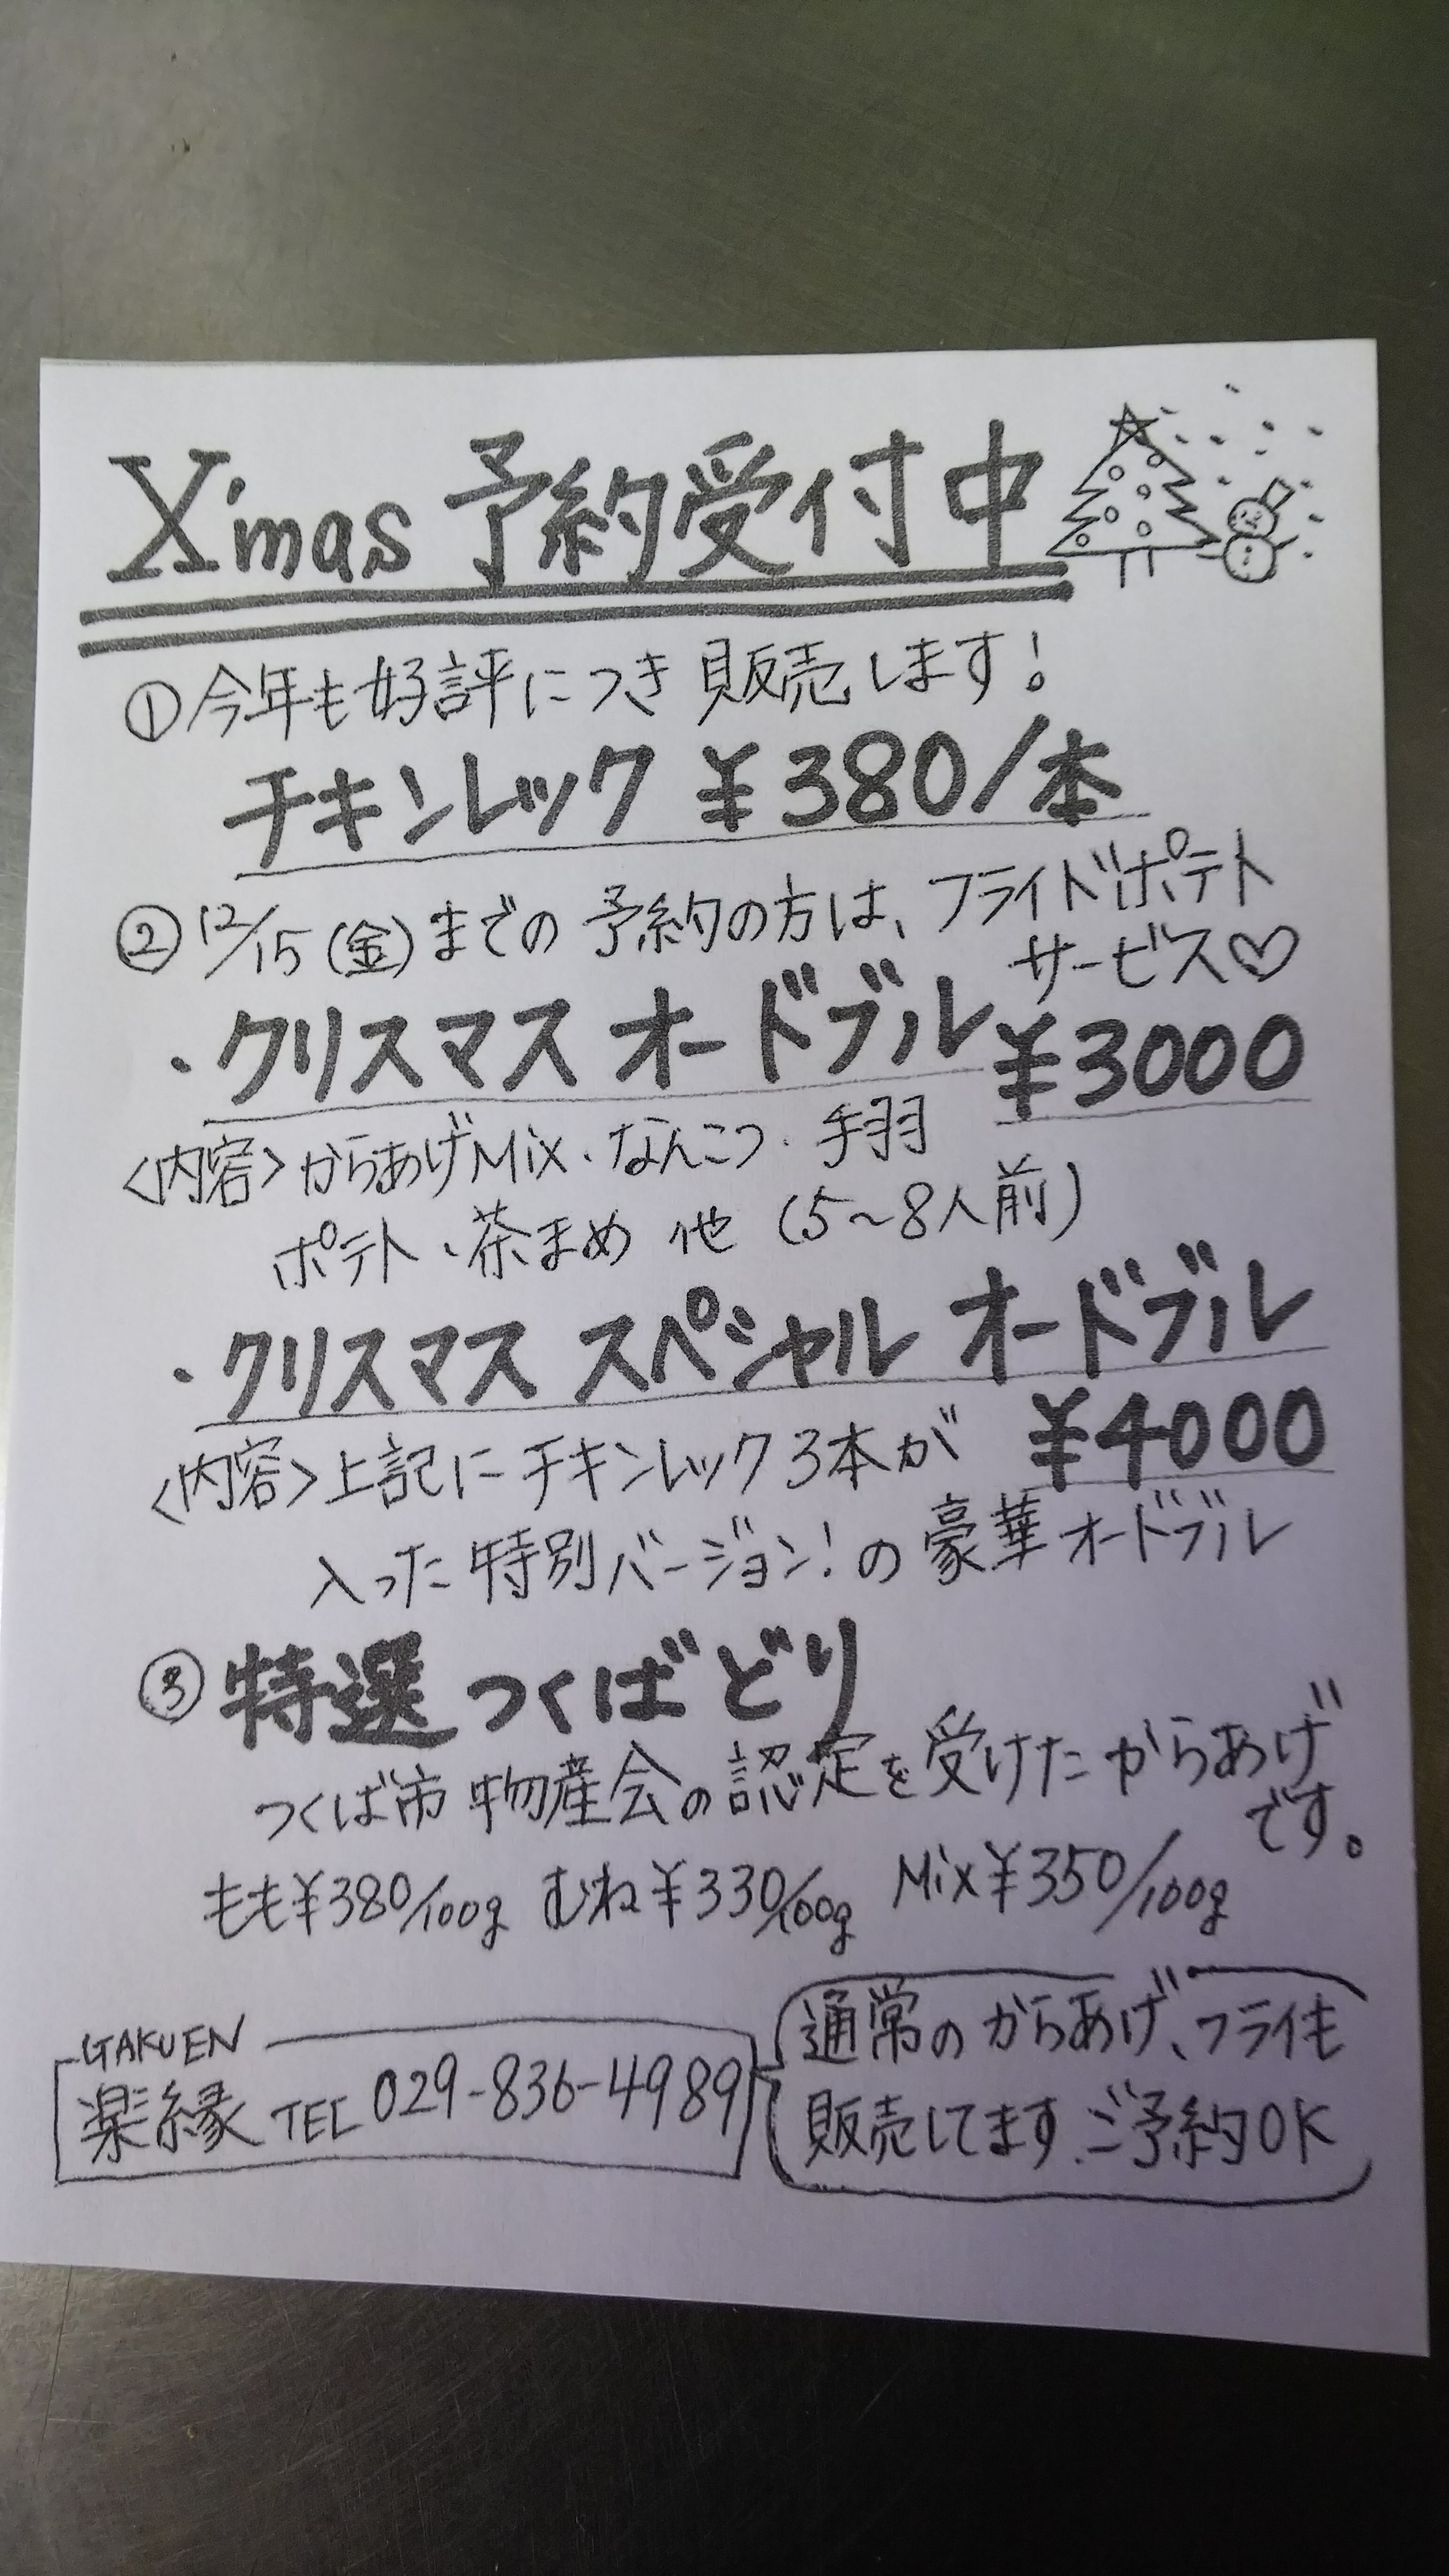 X'mas 予約受付中
①今年も好評につき販売します!
チキンレッグ ¥380/本
②12/15(金)までの予約の方は、フライドポテト
サービス♡
・クリスマス オードブル ¥3000
<内容>からあげMix・なんこつ・手羽
ポテト・茶まめ 他 (5~8人前)
・クリスマス スペシャル オードブル
¥4000
<内容>上記にチキンレッグ3本が
入った特別バージョン!の豪華オードブル
③特選 つくばどり
つくば市物産会の認定を受けたからあげ
です。
もも¥380/100g むね¥330/100g Mix¥350/100g
GAKUEN
楽縁 TEL 029-836-4989
通常のからあげ、フライも
販売してます。ご予約OK